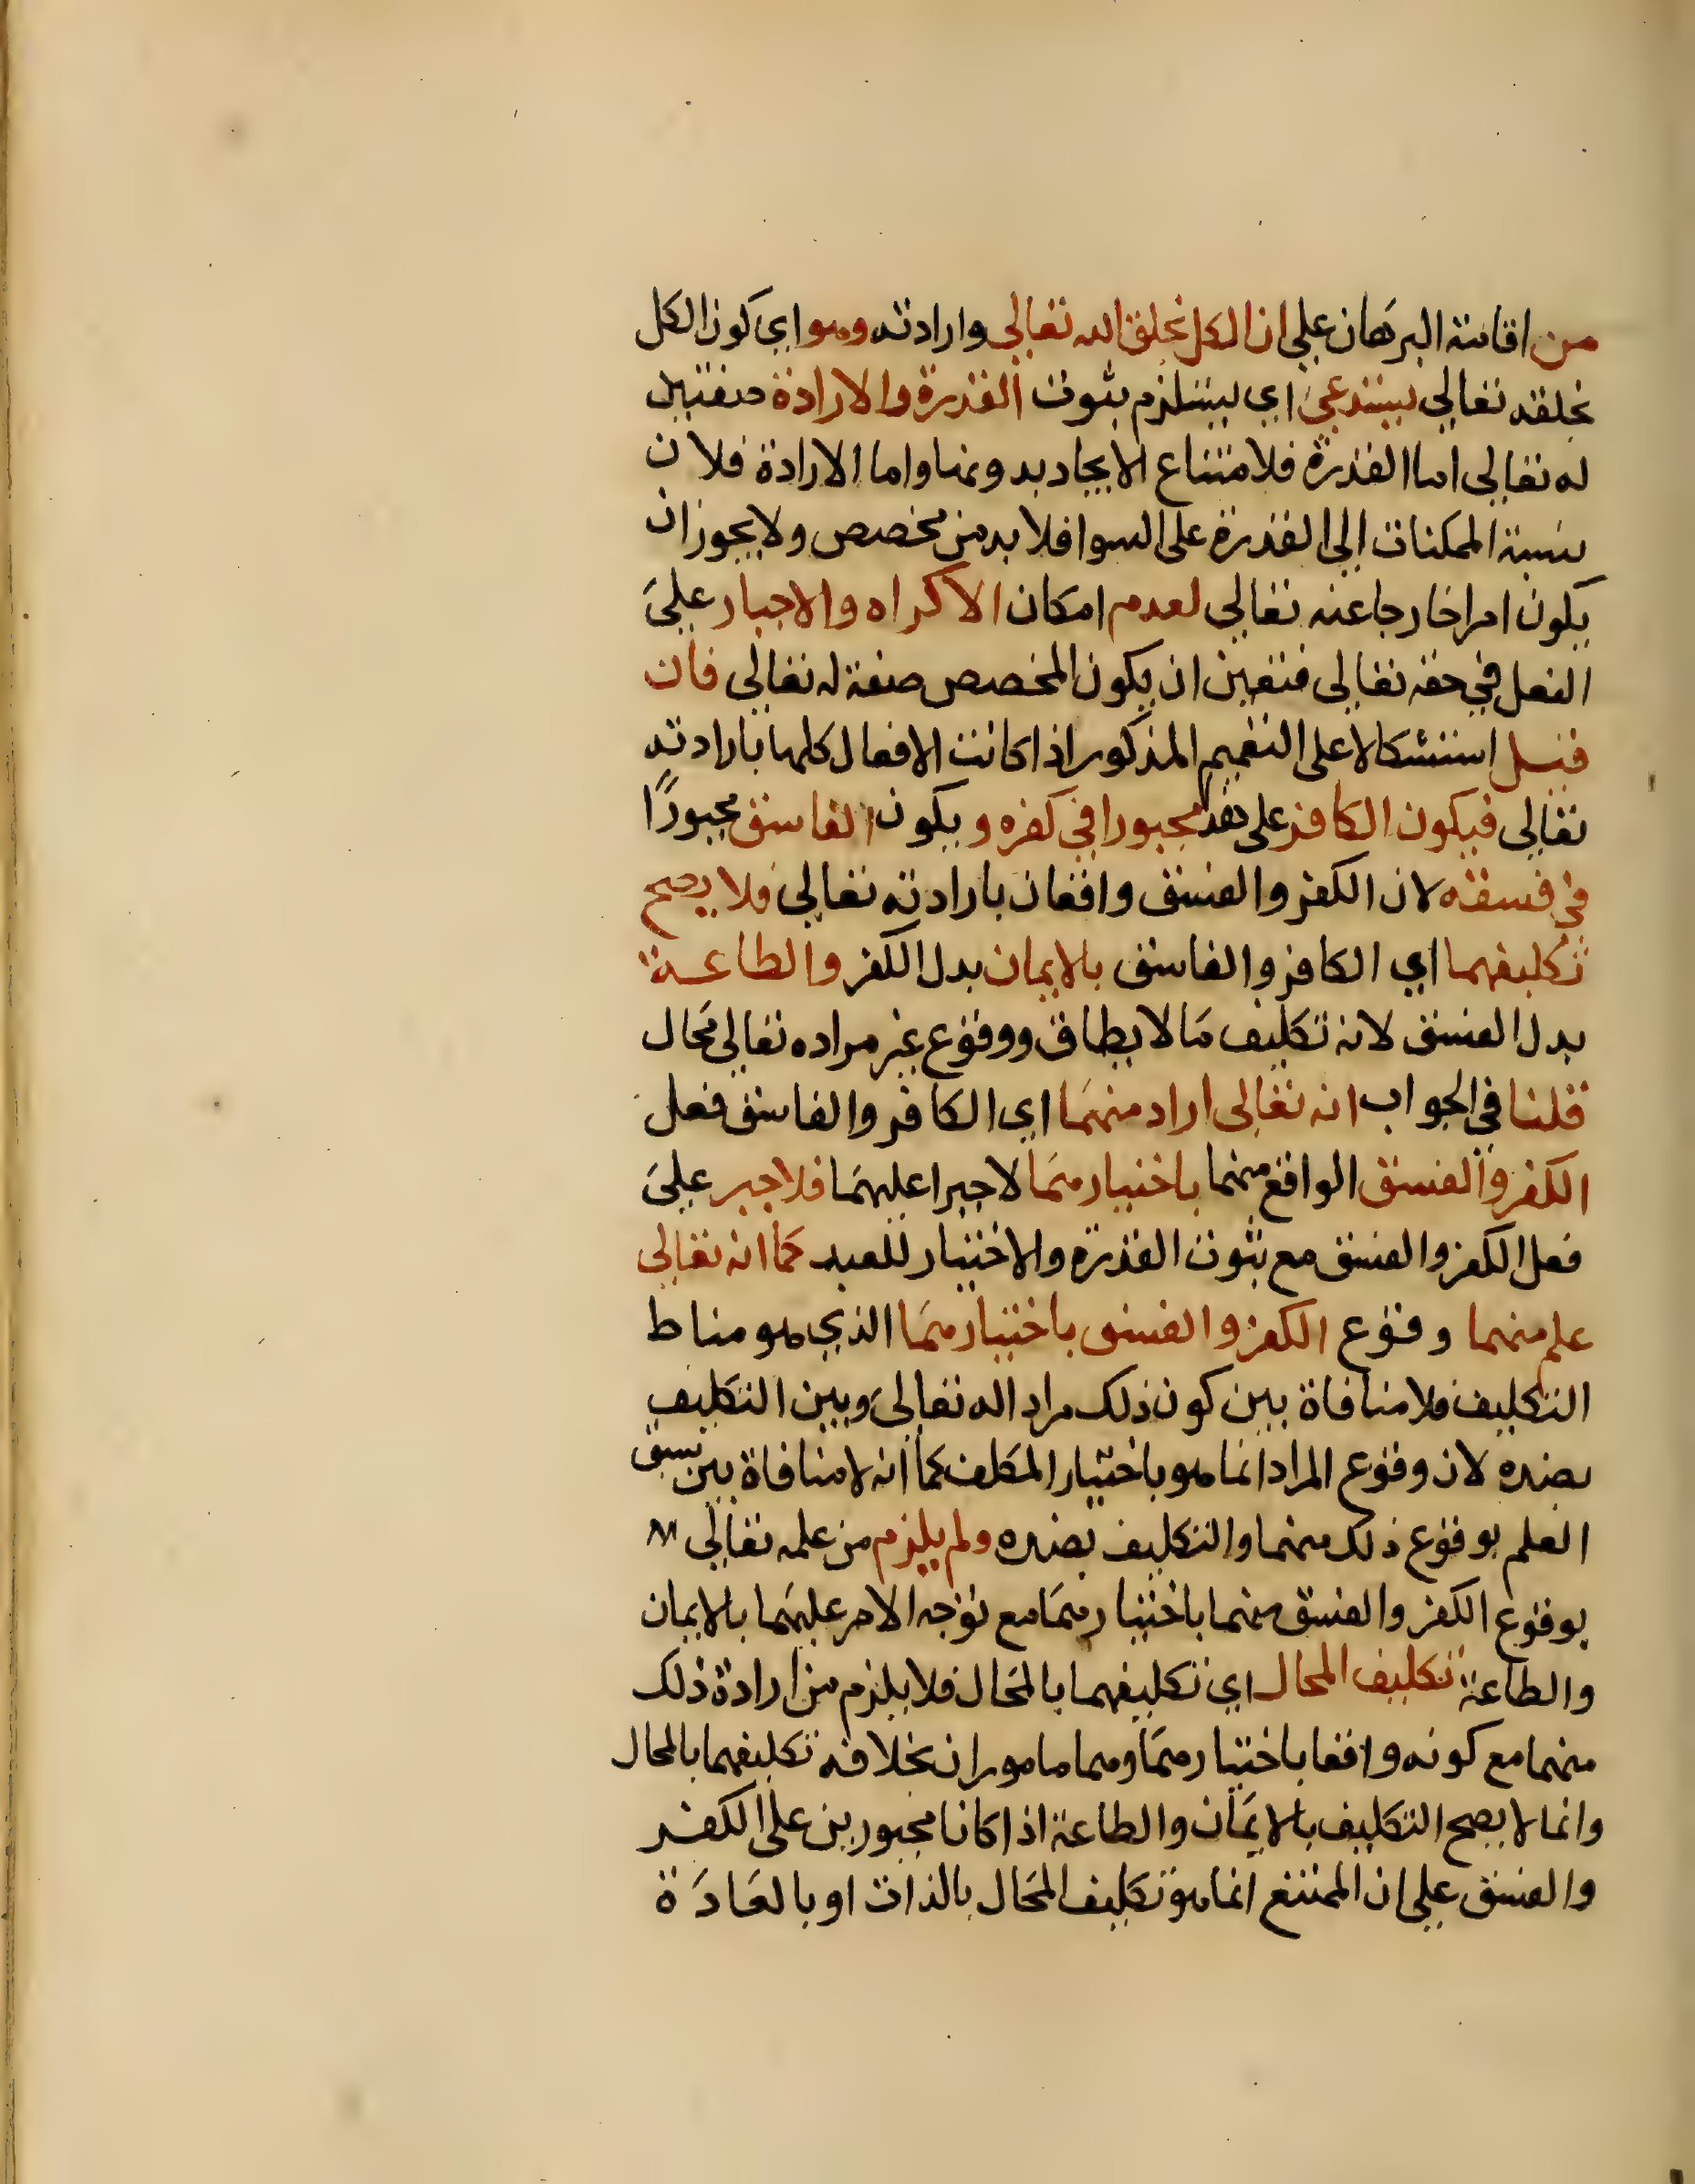 من اقامة البرهان على ان الكل بخلق الله تعالى وارادته وهو اي كون الكل
بخلقه تعالى يستدعي اي يستلزم ثبوت القدرة والارادة صفتين
له تعالى اما القدرة فلامتناع الايجاد بدونها واما الارادة فلان
نسبة الممكنات الى القدرة على السوا فلا بد من مخصص ولا يجوز ان
يكون امرا خارجا عنه تعالى لعدم امكان الاكراه والاجبار على
الفعل في حقه تعالى فتعين ان يكون المخصص صفة له تعالى فان
قيل استشكالا على التعميم المذكور اذا كانت الافعال كلها بارادته
تعالى فيكون الكافر على هذا مجبورا في كفره ويكون الفاسق مجبورًا
في فسقه لان الكفر والفسق واقعان بارادته تعالى فلا يصح
تكليفهما اي الكافر والفاسق بالايمان بدل الكفر والطاعة
بدل الفسق لانه تكليف ما لا يطاق ووقوع غير مراده تعالى محال
قلنا في الجواب انه تعالى اراد منهما اي الكافر والفاسق فعل
الكفر والفسق الواقع منهما باختيارهما لا جبرا عليهما فلا جبر على
فعل الكفر والفسق مع ثبوت القدرة والاختيار للعبد كما انه تعالى
علم منهما وقوع الكفر والفسق باختيارهما الذي هو مناط
التكليف فلا منافاة بين كون ذلك مراد الله تعالى وبين التكليف
بضده لان وقوع المراد انما هو باختيار المكلف كما انه لا منافاة بين سبق
العلم بوقوع ذلك منهما والتكليف بضده ولم يلزم من علمه تعالى
بوقوع الكفر والفسق منهما باختيارهما مع توجه الامر عليهما بالايمان
والطاعة تكليف المحال اي تكليفهما بالمحال فلا يلزم من ارادة ذلك
منهما مع كونه واقعا باختيارهما وهما ماموران بخلافه تكليفهما بالمحال
وانما لا يصح التكليف بالايمان والطاعة اذا كانا مجبورين على الكفر
والفسق على ان الممتنع انما هو تكليف المحال بالذات او بالعادة